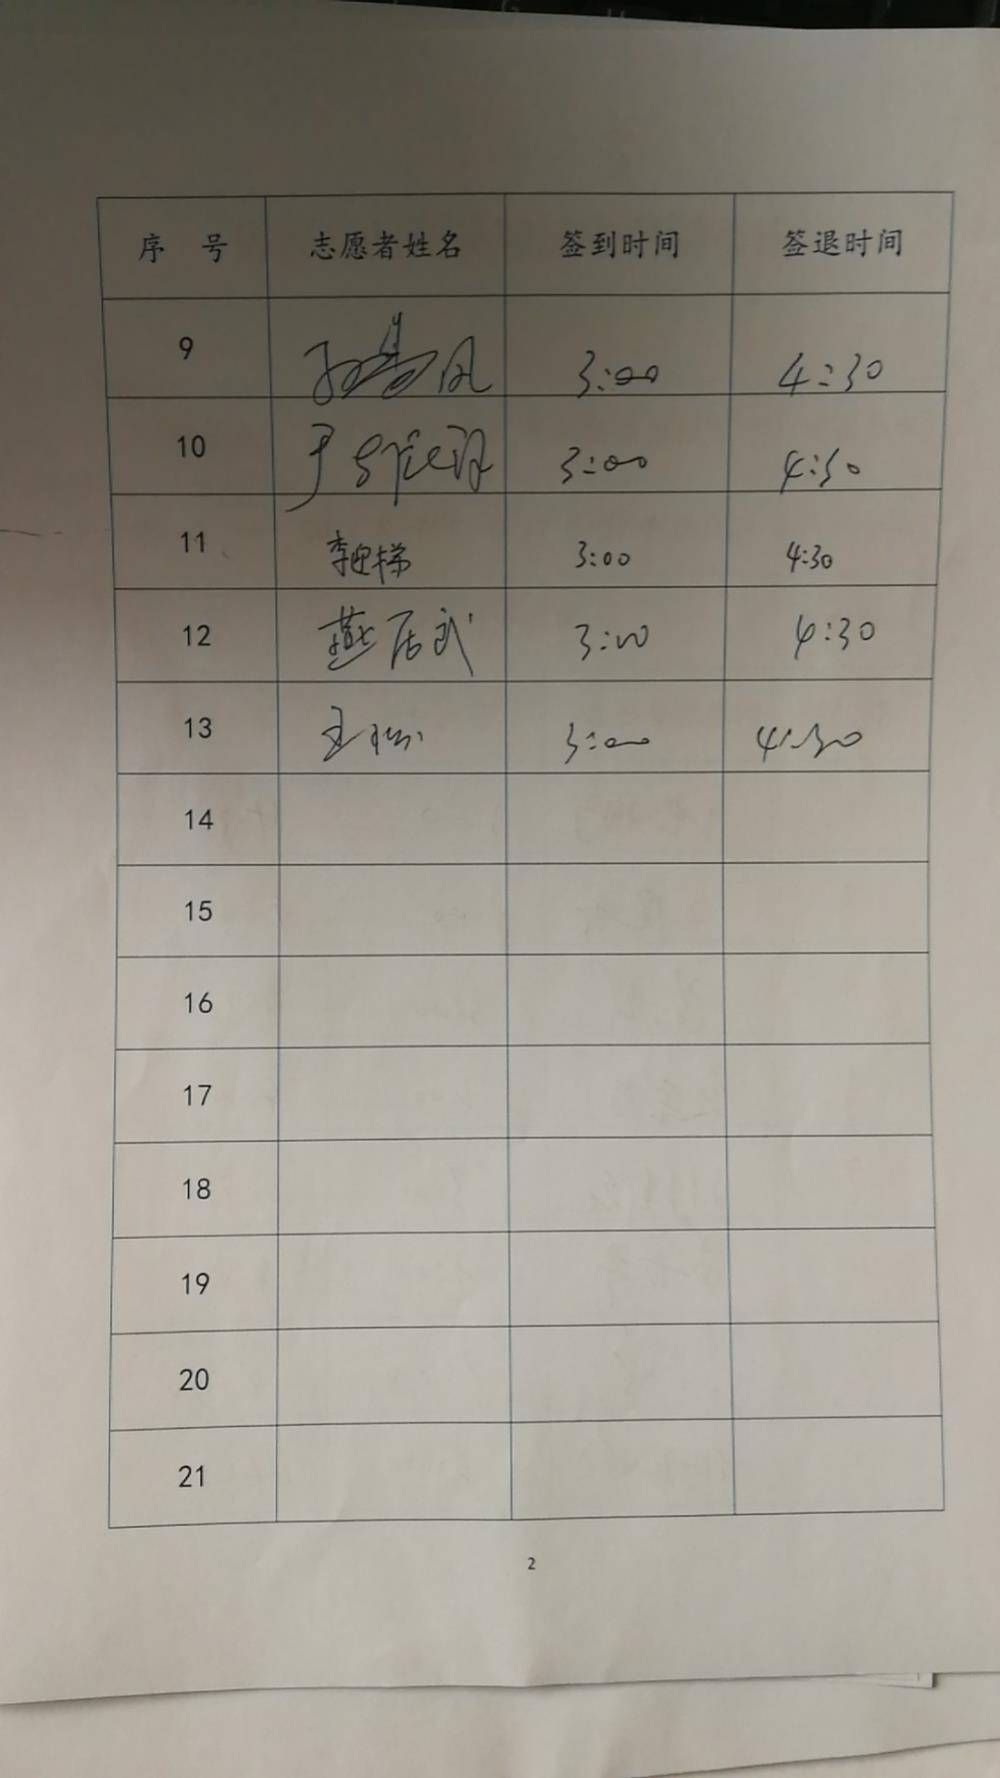 序 号 志愿者姓名 签到时间 签退时间
9 3:00 4:30
10 3:00 4:30
11 3:00 4:30
12 燕居武 3:00 4:30
13 3:00 4:30
14
15
16
17
18
19
20
21
2